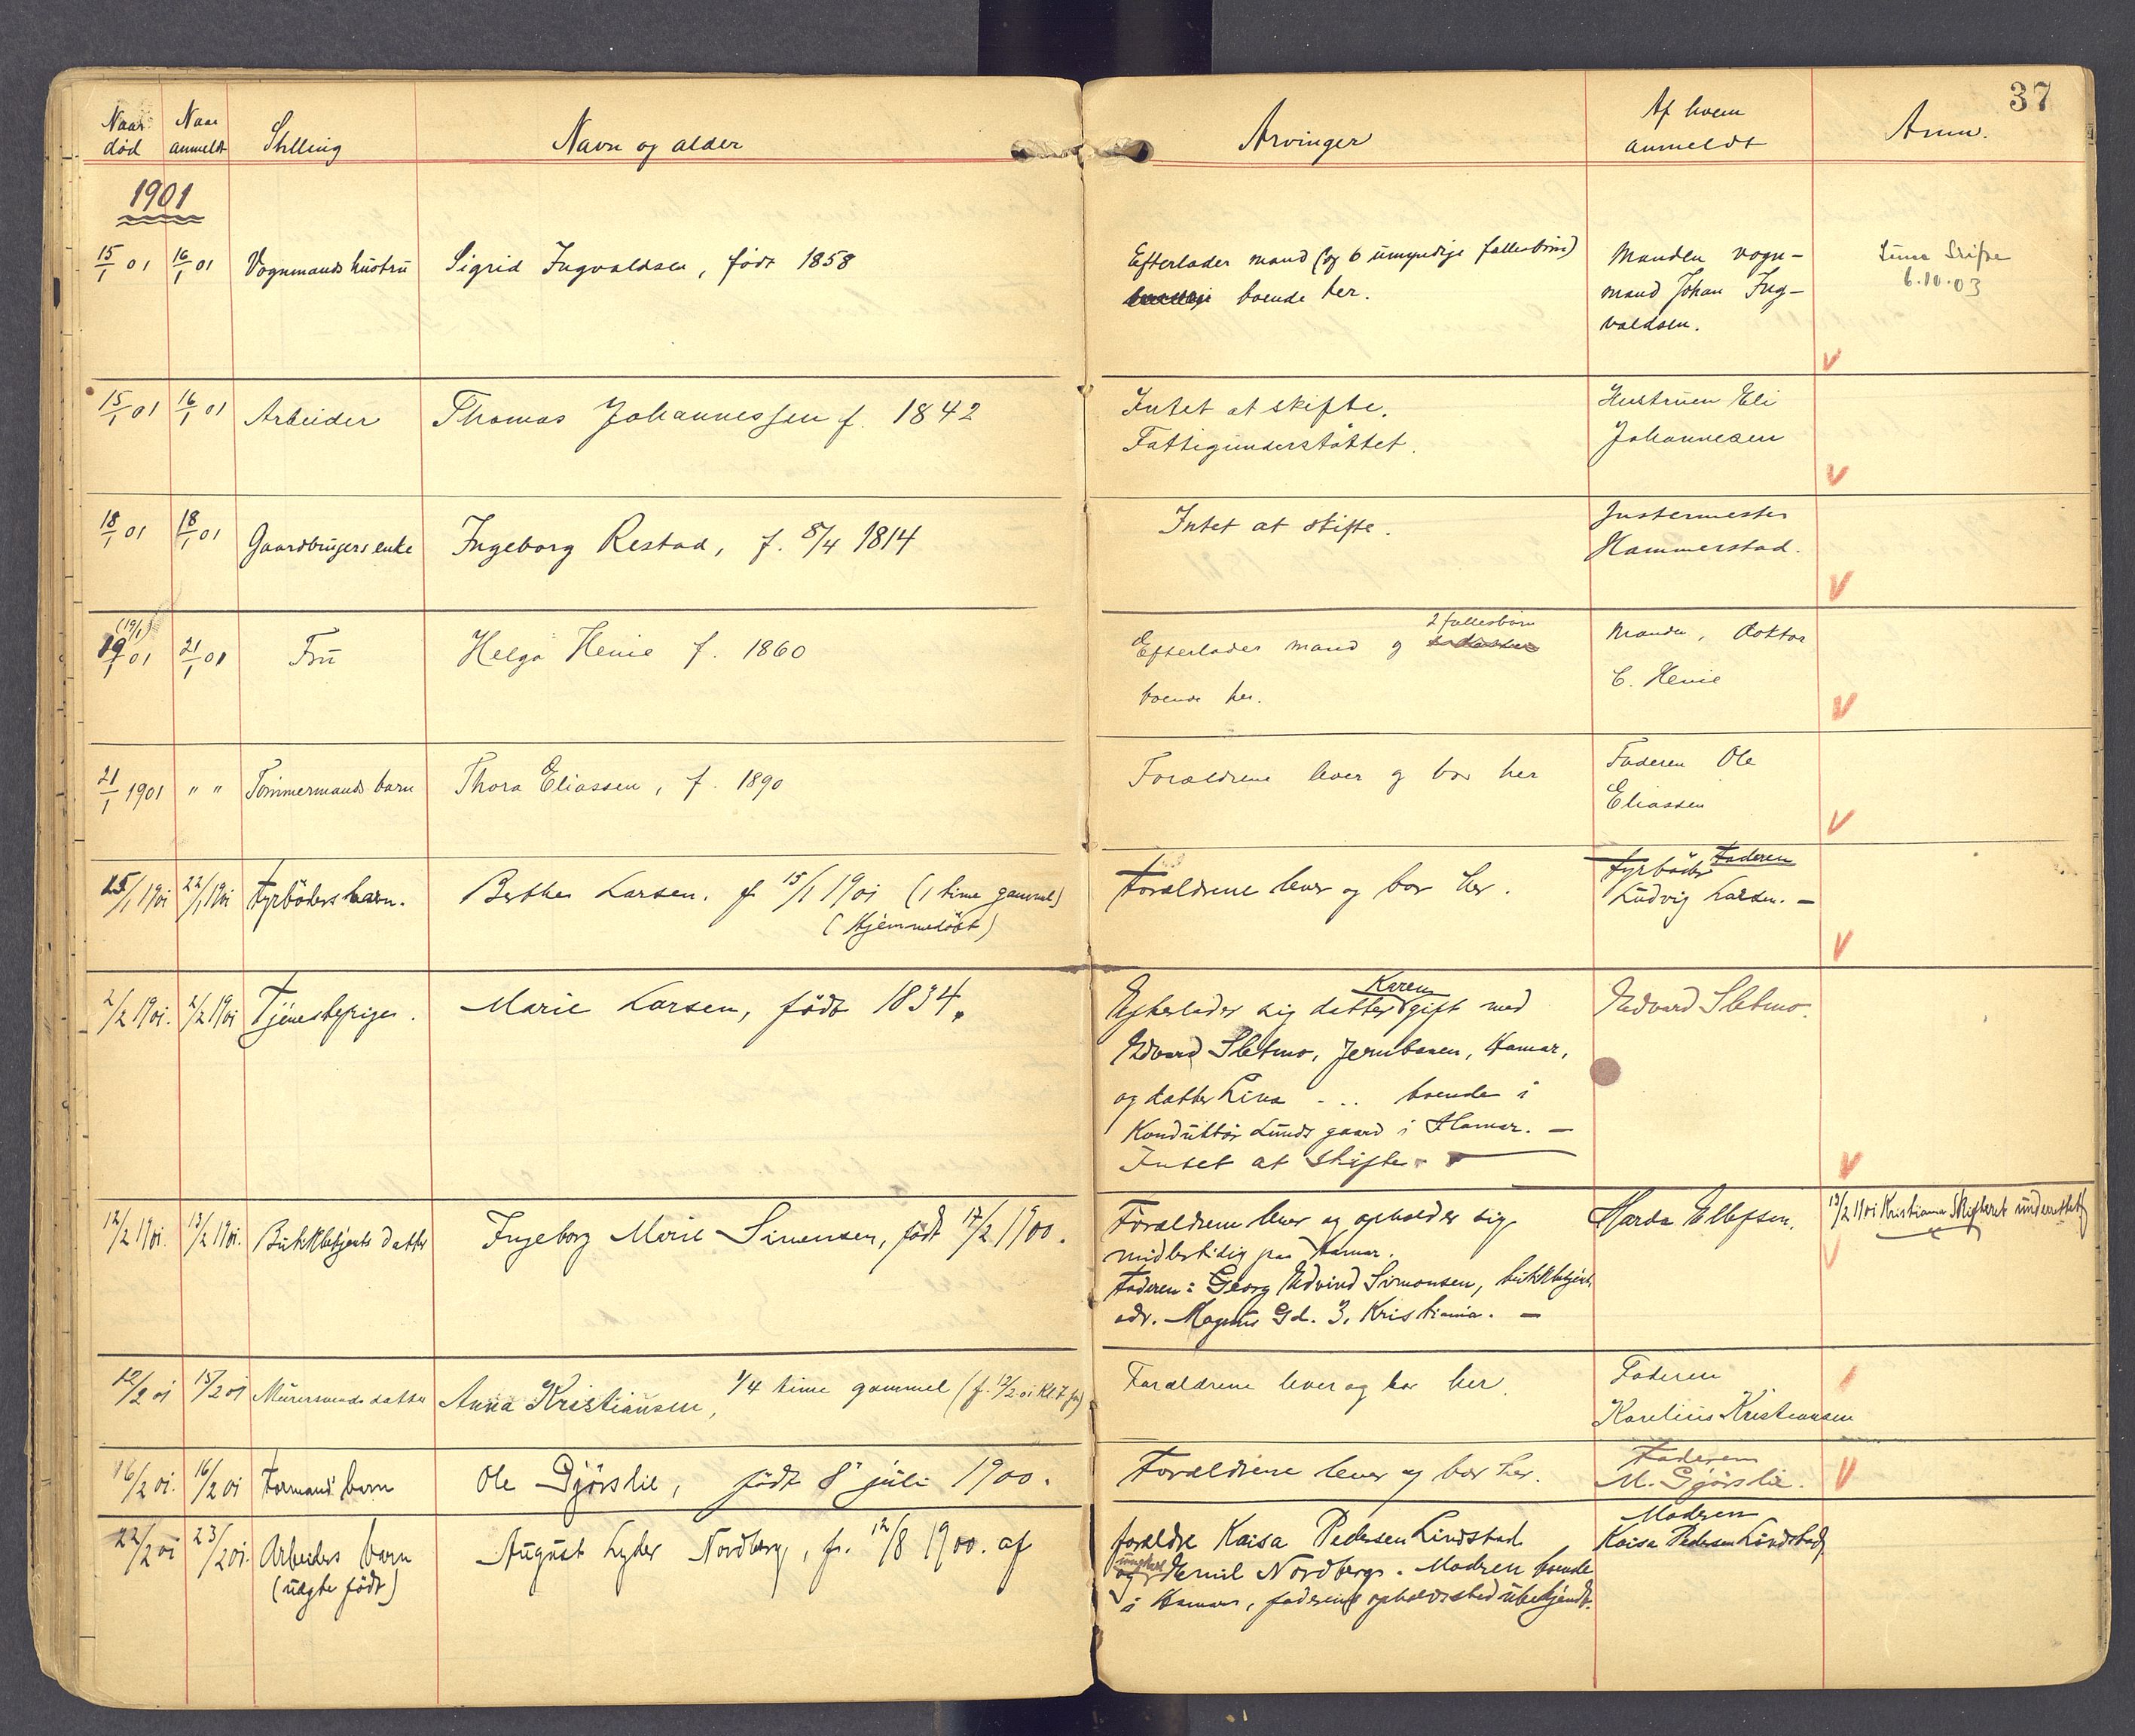 37
Naar død
Naar anmeldt
Stilling
Navn og alder
Arvinger
Af hvem anmeldt
Anm.
1901
15/1 01 16/1 01 Vognmands hustru Sigrid Ingvaldsen, født 1858
Efterlader mand (og 6 umyndige fællesbørn)
boende her.
Manden vogn-
mand Johan Ing-
valdsen.
6.10.03
15/1 01 16/1 01 Arbeider Thomas Johannessen f. 1842
Intet at skifte.
Fattigunderstøttet.
Hustruen Eli
Johannesen
18/1 01 18/1 01 Gaardbrugers enke Ingeborg Restad, f. 8/4 1814
Intet at skifte.
Justermester
Hammerstad.
(19/1)
19/1 01 21/1 01 Fru Helga Henie f. 1860
2 fællesbørn
Efterlader mand og
boende her.
Manden, doktor
C. Henie
21/1 1901 " " Tømmermands barn Thora Eliassen, f. 1890
Forældrene lever og bor her
Faderen Ole
Eliassen
15/1 1901 22/1 1901 Fyrbøders barn. Berthe Larsen. f. 15/1 1901 (1 time gammel)
(Hjemmedøbt)
Forældrene lever og bor her.
Fyrbøder Faderen
Ludvig Larsen. –
2/2 1901. 2/2 1901 Tjenestepige. Marie Larsen, født 1834.
Karen
Efterlader sig datter gift med
Edvard Sletmo, Jernbanen, Hamar,
og datter Lina - .. boende i
Konduktør Lunds gaard i Hamar. –
Intet at skifte.
Edvard Sletmo.
12/2 1901. 13/2 1901. Butikbetjents datter Ingeborg Marie Simensen, født 17/2 1900.
Forældrene lever og opholder sig
midlertidig paa Hamar.
Faderen: Georg Edvind Simonsen, butikbetjent,
adr. Magnus Gd. 3, Kristiania. –
Marda Ellefsen.
13/2 1901 Kristiania Skifteret underrettet
12/2 01 15/2 01 Murersvends datter Anna Kristiansen, 1/4 time gammel (f. 12/2 01 Kl. 7 fm)
Forældrene lever og bor her.
Faderen
Karelius Kristiansen
16/2 01. 16/2 01 Formands barn Ole Gjørslie, født 8 juli 1900.
Forældrene lever og bor her.
Faderen
M. Gjørslie.
22/2 01 23/2 01. Arbeiders barn August Lyder Nordberg, f. 12/8 1900. af
(uægte født)
forældre Kaisa Pedersen Lindstad
ungkarl
og Emil Nordberg. Modren boende
i Hamar, faderens opholdssted ubekjendt.
Modren
Kaisa Pedersen Lindstad